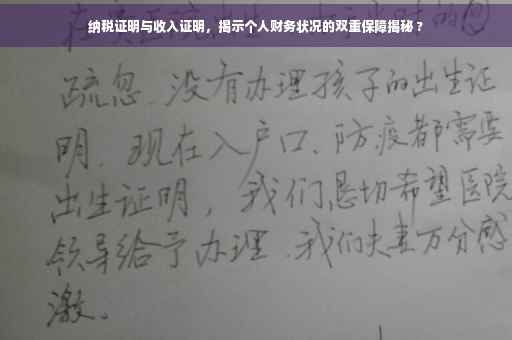 纳税证明与收入证明，揭示个人财务状况的双重保障揭秘？
疏忽、没有办理孩子的出生证
明．现在入户口、防疫都需要
出生证明，我们恳切希望医院
领导给予办理．我们夫妻万分感
激。